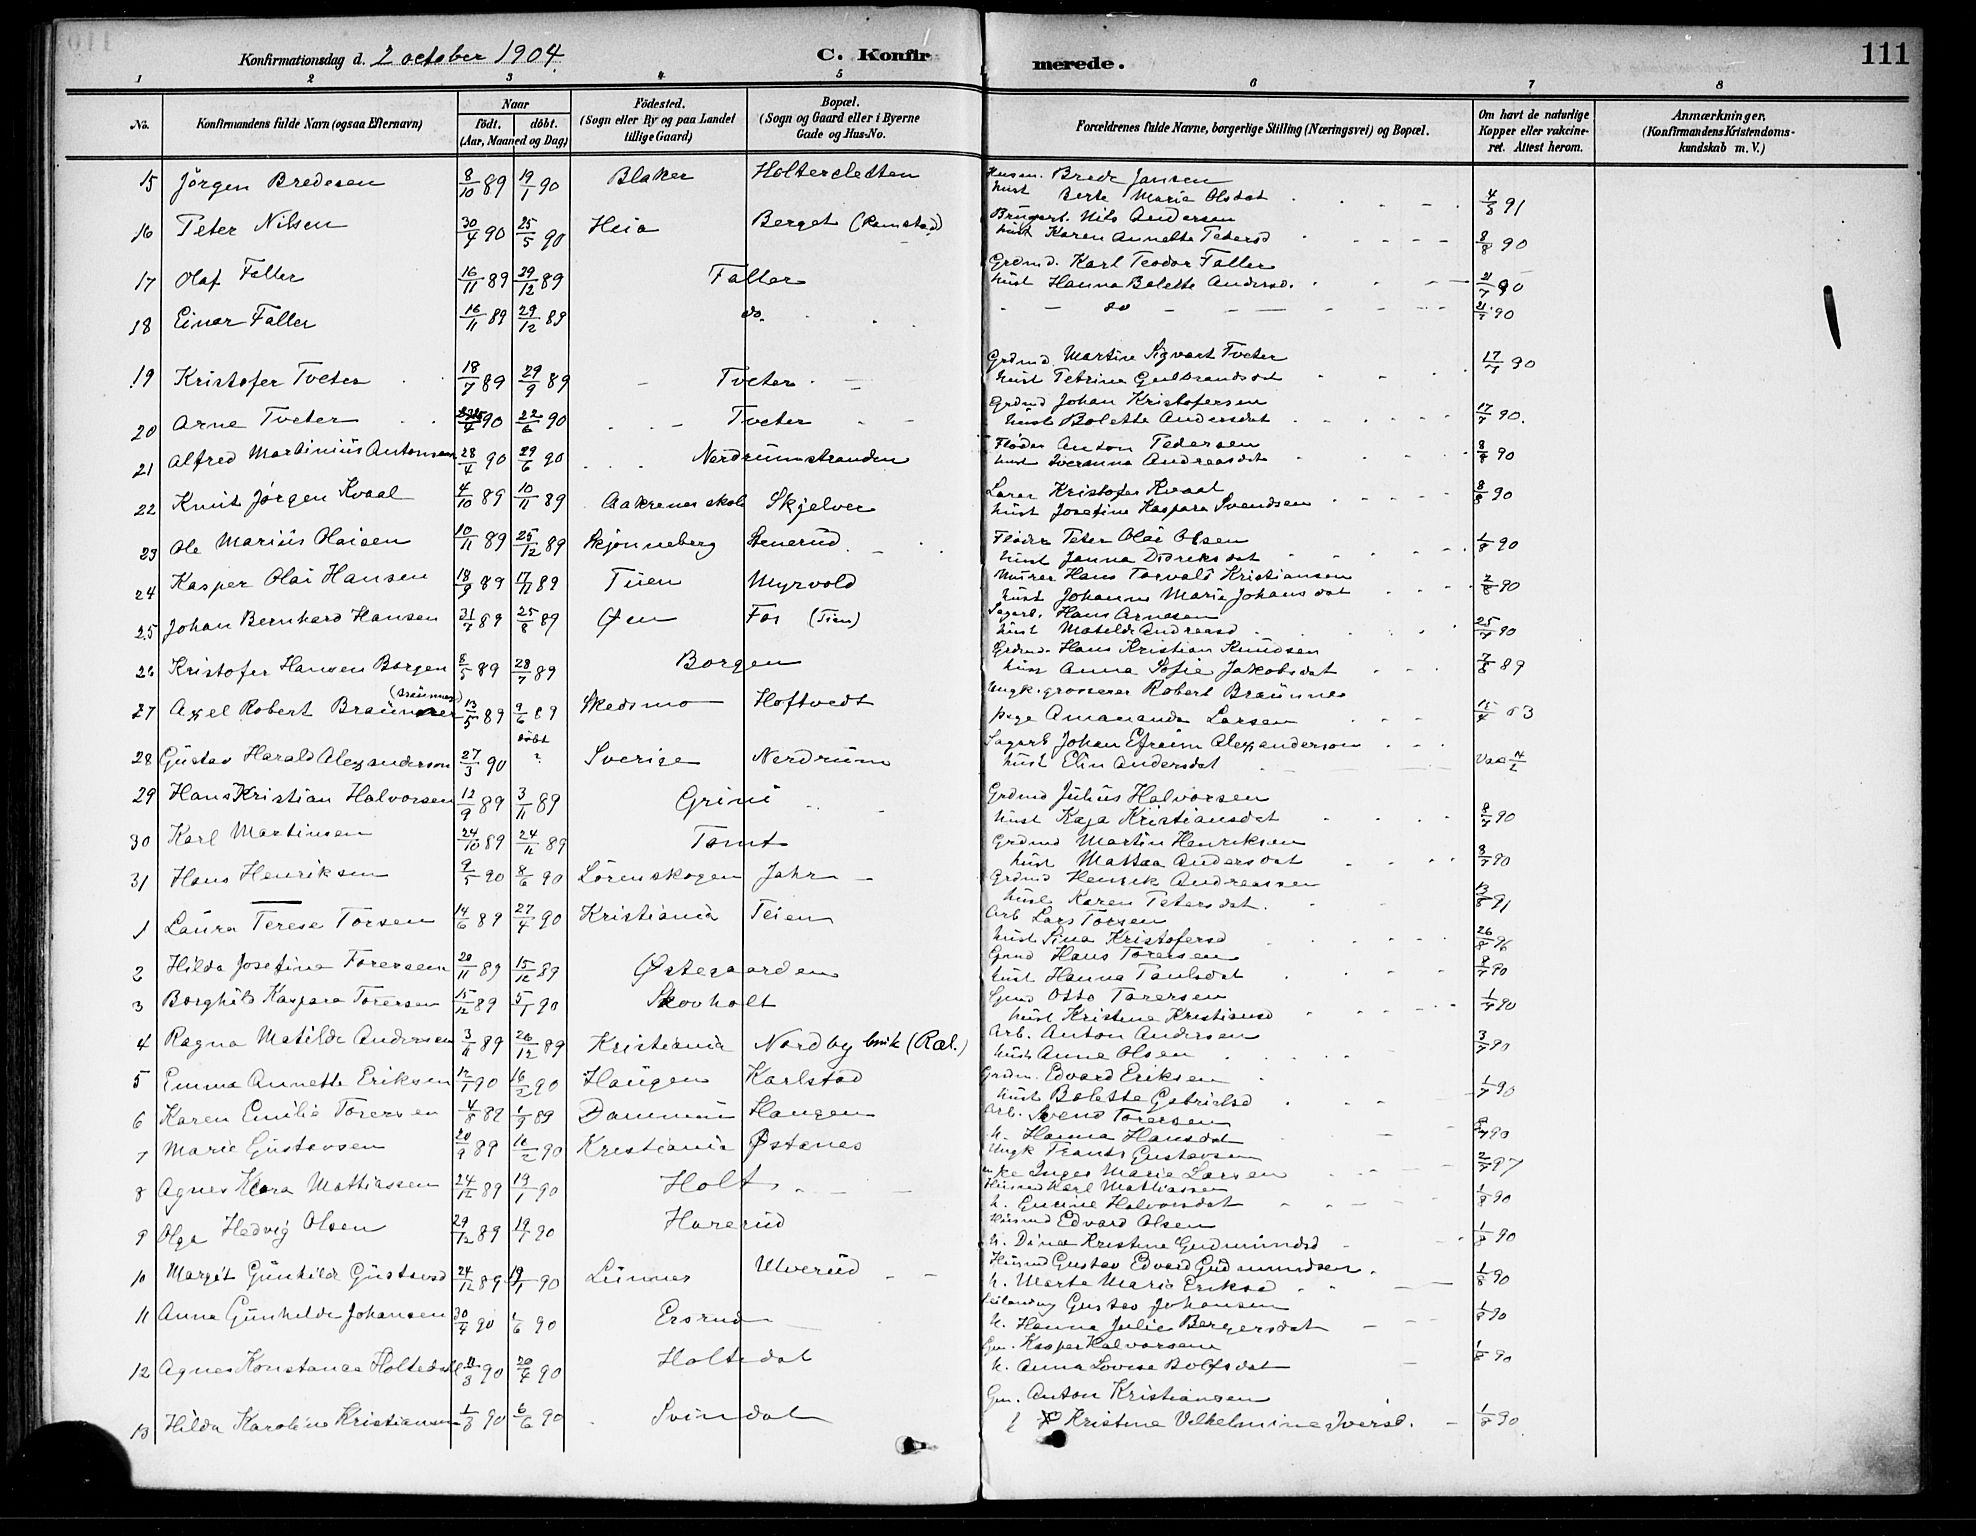 Konfirmationsdag d. 2 october 1904.
C. Konfirmerede.
111
1 2 3 4 5 6 7 8
No.
Konfirmandens fulde Navn (ogsaa Efternavn)
Naar
født. døbt.
(Aar, Maaned og Dag)
Födested.
(Sogn eller By og paa Landet
tillige Gaard)
Bopæl.
(Sogn og Gaard eller i Byerne
Gade og Hus-No.
Forældrenes fulde Navne, borgerlige Stilling (Næringsvei) og Bopæl.
Om havt de naturlige
Kopper eller vakcine-
ret. Attest herom.
Anmærkninger,
(Konfirmandens Kristendoms-
kundskab m. V.)
15 Jörgen Bredesen 8/10 89 19/1 90 Blaker Holtersletten Husm. Brede Jansen
hust Berte Maria Olsdat 4/8 91
16 Peter Nilsen 30/4 90 25/5 90 Heia Berget (Ramstad) Brugerb. Nils Andersen
hust Karen Annette Pedersd 8/8 90
17 Olaf Faller 16/11 89 29/12 89 Faller Grdmd. Karl Teodor Faller
hust Hanna Bolette Andersd. 21/7 90
18 Einar Faller 16/11 89 29/12 89 do. - - do - 21/7 90
19 Kristofer Tveter 18/7 89 29/9 89 - Tveter - Grdmd Martin Sigvart Tveter
hust Petrine Gulbrandsdat 17/7 90
20 Arne Tveter 90 22/6 90 Tveter Grdmd Johan Kristofersen
hust Bolette Andersdat 17/7 90.
21 Alfred Martinius Antonsen 28/4 90 29/6 90 Nerdrumstranden Fløder Anton Pedersen
hust Iveranna Andreasdat 8/8 90
22 Knut Jørgen Kvaal 4/10 89 10/11 89 Aakrenes skole Skjelver Lærer Kristofer Kvaal
hust Josefine Kaspara Svendsen 8/8 90
23 Ole Marius Olaisen 10/11 89 25/12 89 Skjønneberg Stenerud Fløder Peter Olai Olsen
hust Janna Didriksdat 1/8 90
24 Kasper Olai Hansen 18/9 89 17/11 89 Tien Myrvold Murer Hans Torvald Kristiansen
hust Johanne Marie Johansdat 2/8 90
25 Johan Bernhard Hansen 31/7 89 25/8 89 Øen Fos (Tien) Sagarb. Hans Arnesen
hust Matilde Andreasd 25/7 90
26 Kristofer Hansen Borgen 8/5 89 28/7 89 Borgen Grdmd. Hans Kristian Knudsen
hust Anna Sofie Jakobsdat 7/8 89
27 Axel Robert 13/5 89 9/6 89 Skedsmo Hoftvedt Ungk. grosserer Robert Braunnes
pige Amananda Larsen
28 Gustav Harald Alexanderson 27/3 90 døbt ? Sverige Nerdrum Sagarb Johan Efraim Alexanderson
hust Elin Andersdat
29 Hans Kristian Halvorsen 12/9 89 3/11 89 Grini Grdmd Julius Halvorsen
hust Kaja Kristiansdat 8/7 90
30 Karl Martinsen 24/10 89 24/11 89 Tomt Grdmd Martin Henriksen
hust Mattea Andersdat 3/7 90
31 Hans Henriksen 9/5 90 8/6 90 Lörenskogen Jahr - Grdmd Henrik Andreassen
hust Karen Petersdat. 13/8 91
1 Laura Terese Torsen 14/6 89 27/4 90 Kristiania Teien Arb Lars Torsen
hust Sina Kristofersd 26/8 96
2 Hilda Josefine Torersen 20/11 89 15/12 89 Østegaarden Grmd Hans Torersen
hust Hanna Paulsdat 8/7 90
3 Borghild Kaspara Torersen 15/12 89 5/1 90 Skovholt Gmd Otto Torersen
hust Kristine Kristiansd 1/7 90
4 Ragna Matilde Andersen 3/11 89 26/12 89 Kristiania Nordby bruk (Ræl.) Arb. Anton Andersen
hust Anne Olsen 3/7 90
5 Emma Annette Eriksen 12/1 90 16/2 90 Haugen Karlstad Grdm. Edvard Eriksen
hust Bolette Gabrielsd 1/7 90
6 Karen Emilie Torersen Haugen Arb. Svend Torersen
h. Hanna Hansdat
7 Marie Gustavsen 20/9 89 90 Kristiania Østenes Ungk Frants Gustavsen
Inger Marie Larsen 2/7 97
8 Agnes Klara Mattiassen 24/12 89 19/1 90 Holt Husmd Karl Mattiassen
h. Gurine Halvorsdat 1/8 90
9 Olga Hedvig Olsen 29/12 89 19/1 90 Harerud Husmd Edvard Olsen
h. Dina Kristine Gudmundsd 1/8 90
10 Margit Gunhilde Gustavsd 24/12 89 19/1 90 Lunner Ulverud Husmd Gustav Edvard Gudmundsen.
h. Marte Marie Eriksd 1/8 90
11 Anna Gunhilde Johansen 30/4 90 1/6 90 Ersrud Gustav Johansen
h. Hanna Julie Bergersdat 1/8 90
12 Agnes Konstance Holtedahl 90 20/4 90 Holtedal Gm. Kasper Halvorsen
h. Anna Lovise Rolfsdat 1/8 90
13 Hilda Karoline Kristiansen 1/3 90 6/6 90 Svindal Gm. Anton Kristiansen
Kristine Vilhelmine Iversd. 1/8 90